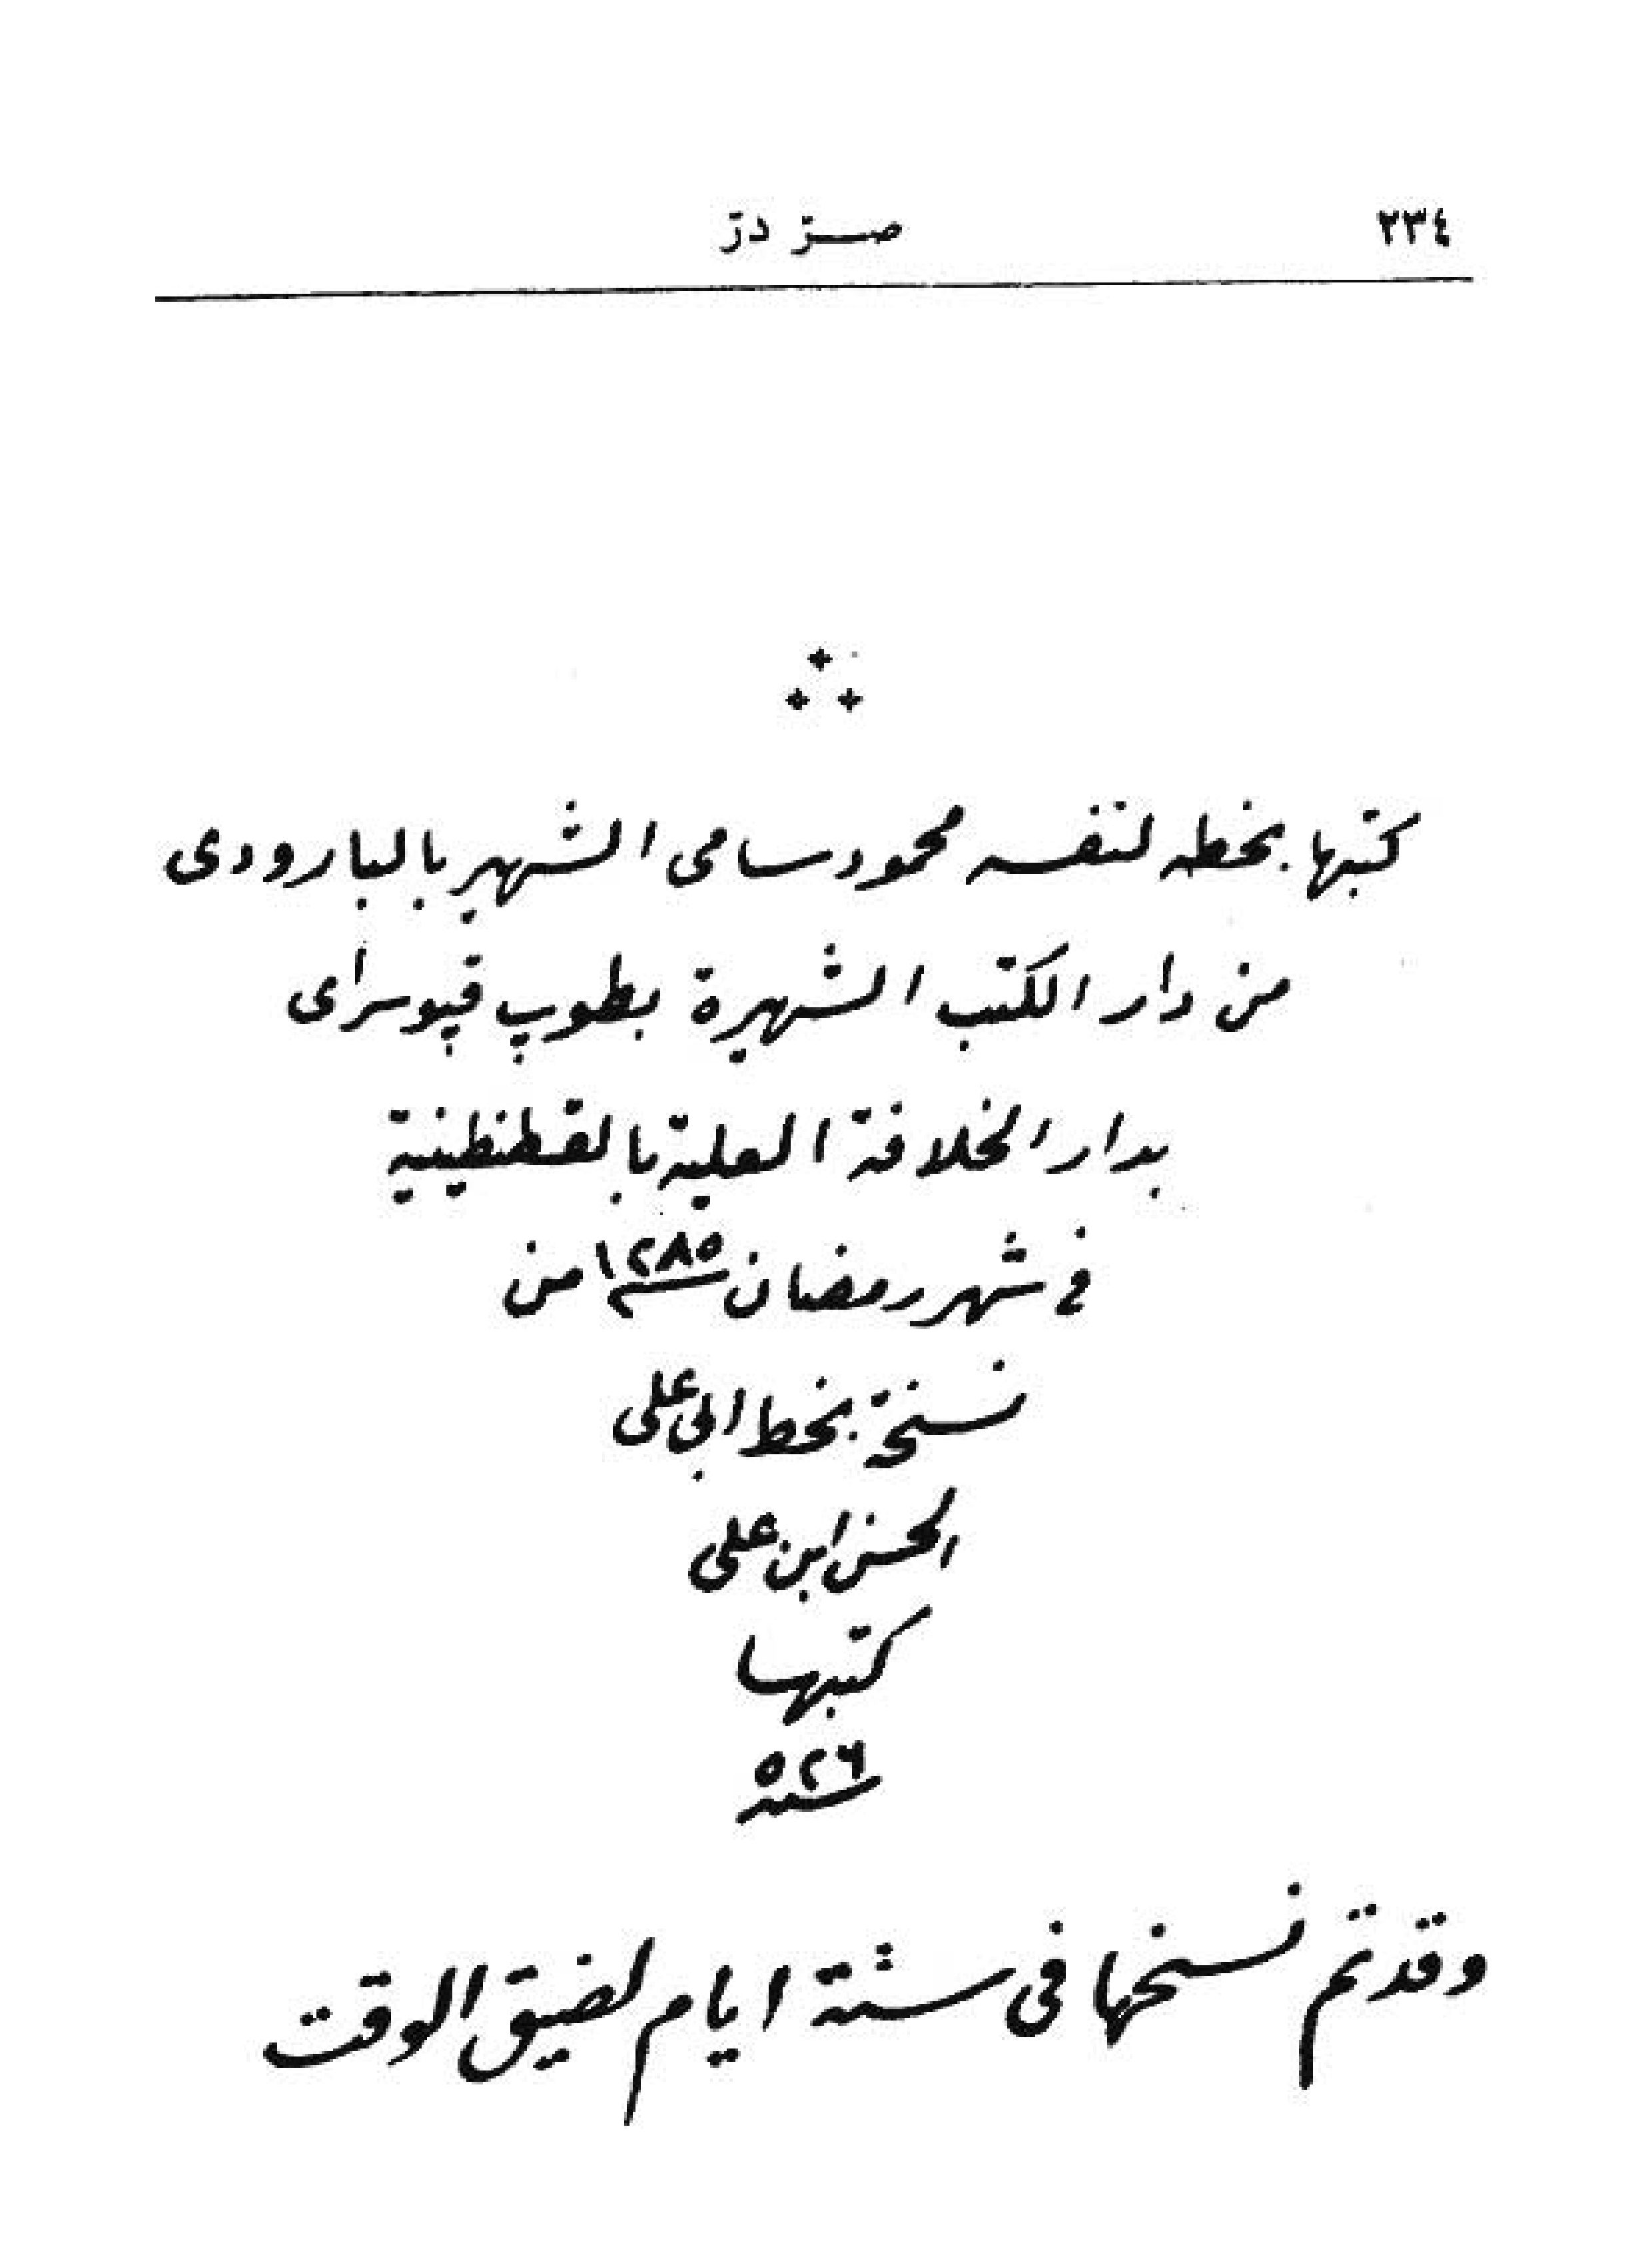 ٢٣٤ صرّ درّ
كتبها بخطه لنفسه محمود سامى الشهير بالبارودى
من دار الكتب الشهيرة بطوپ قپوسراى
بدار الخلافة العلية بالقسطنطينية
فى شهر رمضان سنة ١٢٨٥ من
نسخة بخط ابى على
الحسن ابن على
كتبها
سنة ٥٢٦
وقد تم نسخها فى ستة ايام لضيق الوقت